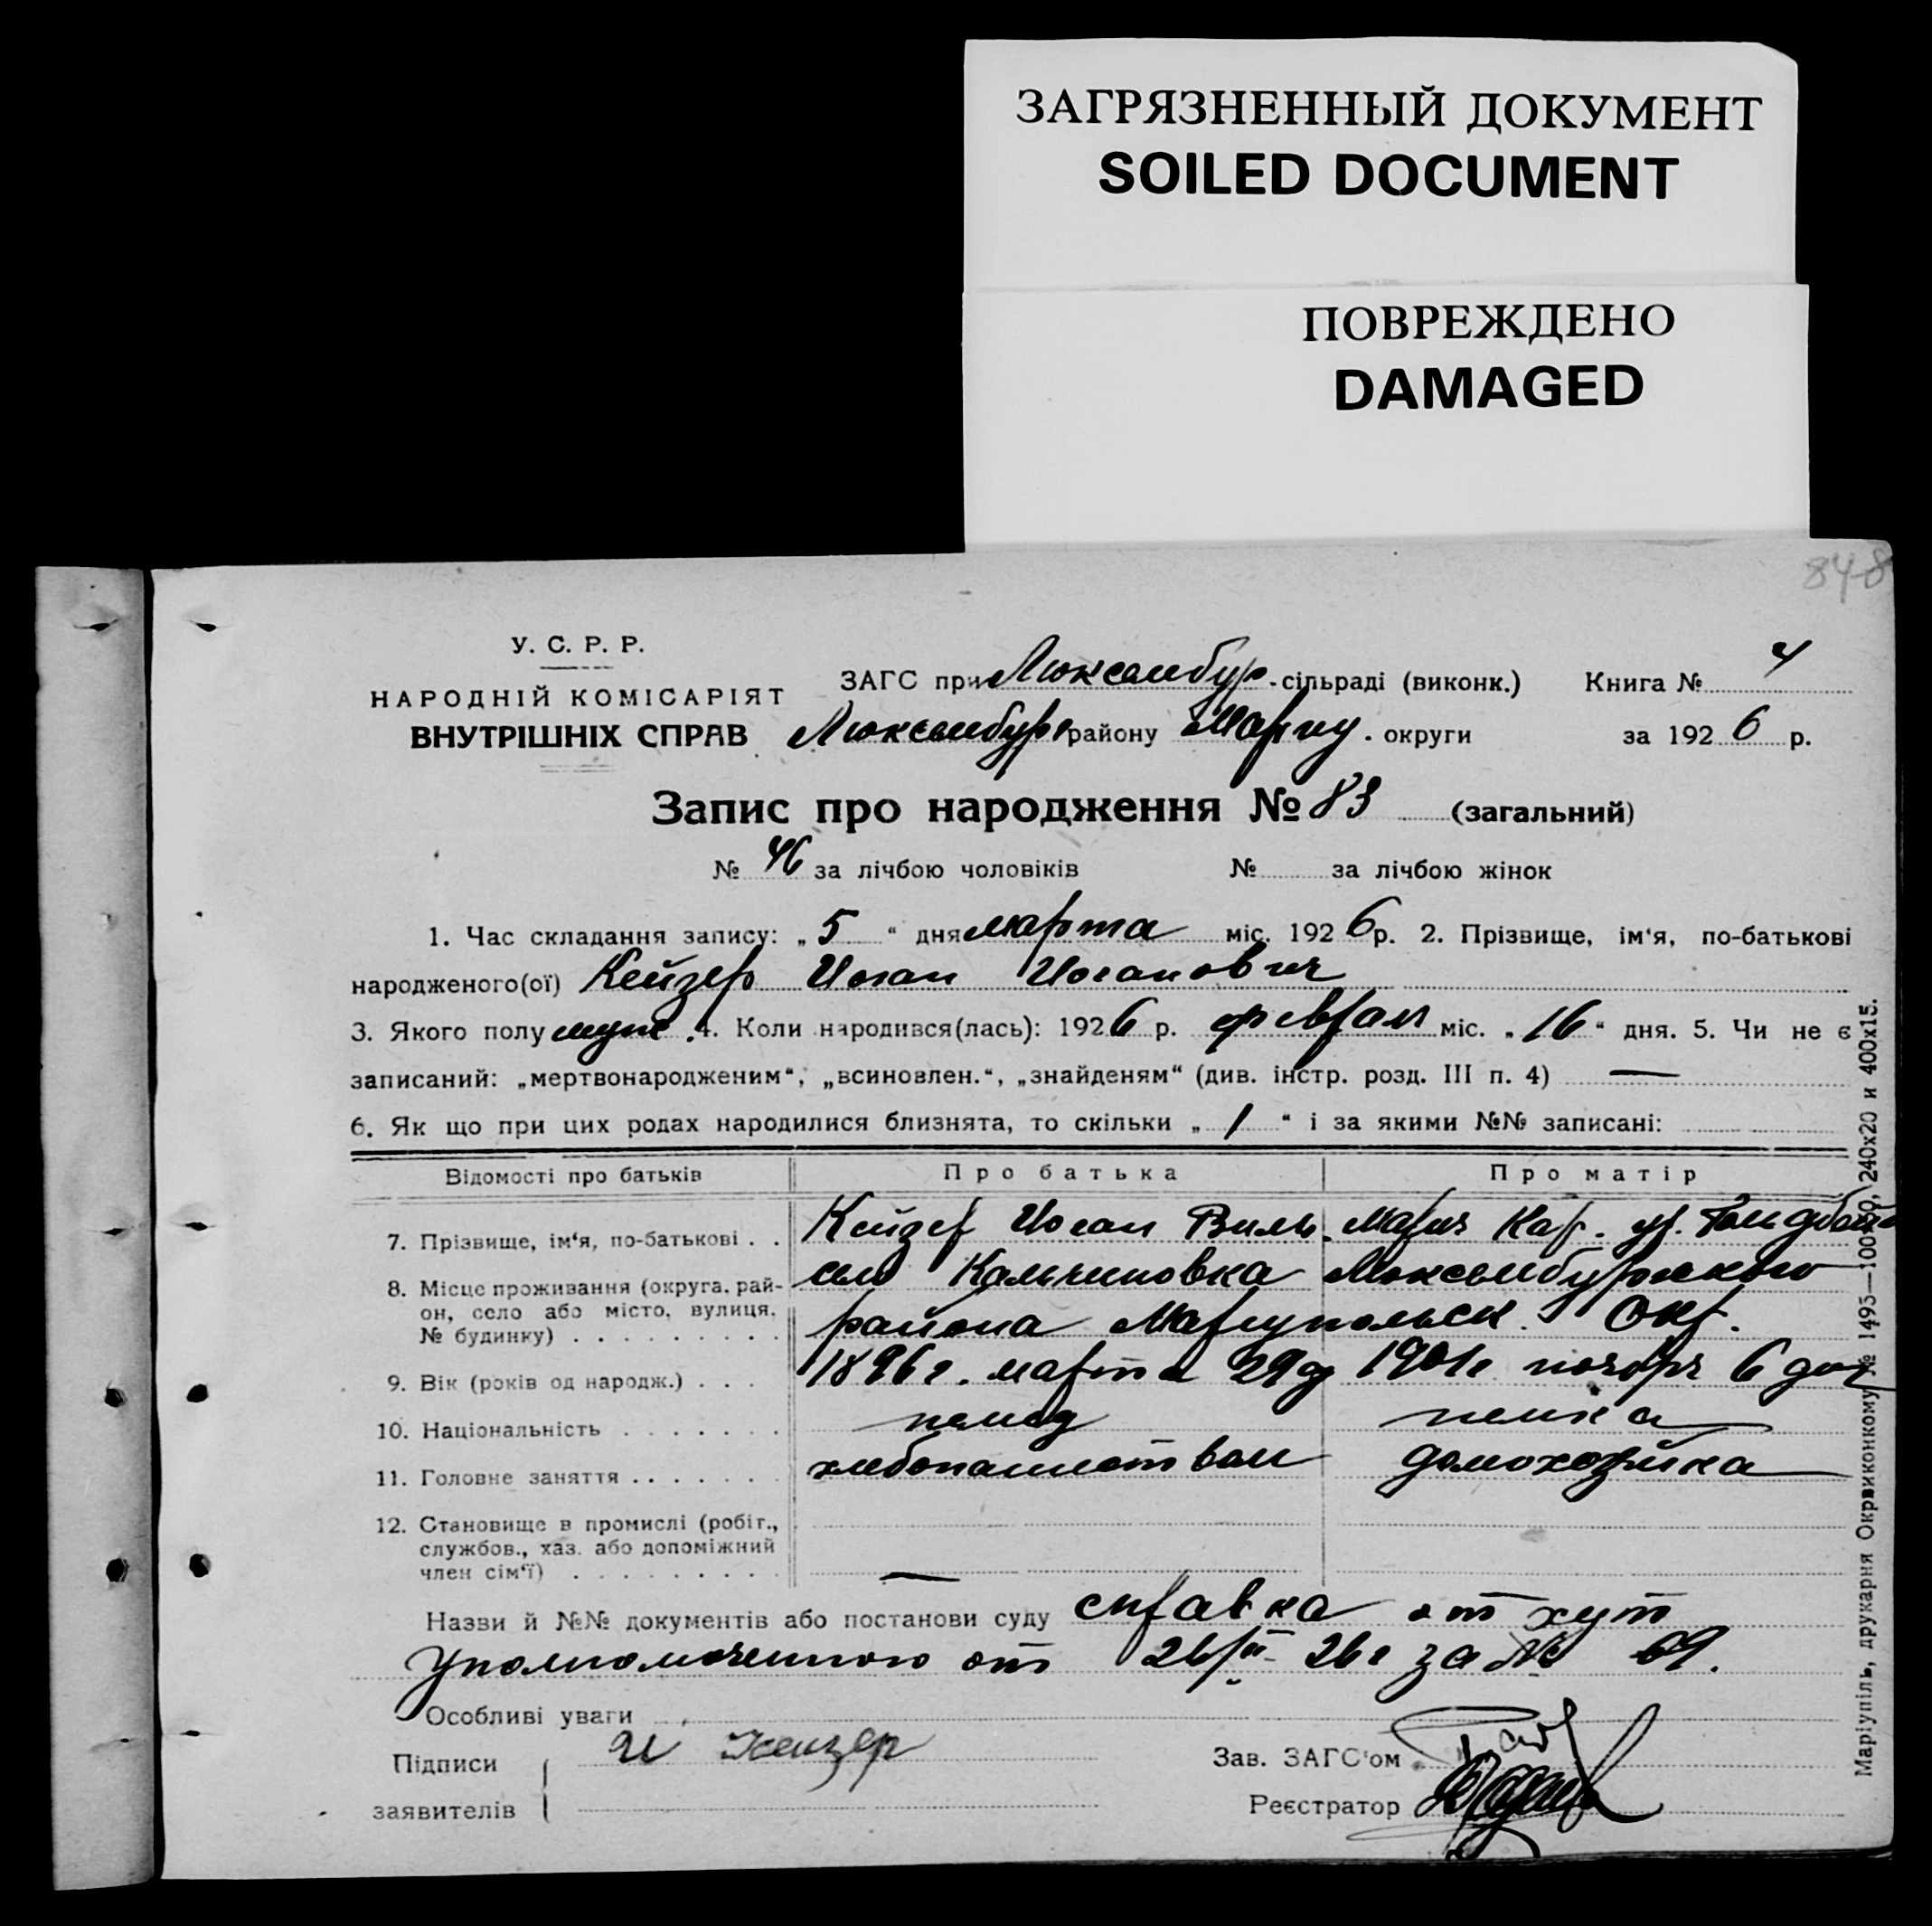 ЗАГРЯЗНЕННЫЙ ДОКУМЕНТ
SOILED DOCUMENT
ПОВРЕЖДЕНО
DAMAGED
848
У. С. Р. Р.
НАРОДНІЙ КОМІСАРІЯТ
ВНУТРІШНІХ СПРАВ
ЗАГС при Люксембур. сільраді (виконк.) Книга № 4
Люксембур району Мариу. округи за 1926 р.
Запис про народження № 83 (загальний)
№ 46 за лічбою чоловіків № за лічбою жінок
1. Час складання запису: „5“ дня марта міс. 1926 р. 2. Прізвище, ім‘я, по-батькові
народженого(ої) Кейзер Иоган Иоганович
3. Якого полу муж. 4. Коли народився(лась): 1926 р. феврал міс. „16“ дня. 5. Чи не є
записаний: „мертвонародженим“, „всиновлен.“, „знайденям“ (див. інстр. розд. III п. 4) —
6. Як що при цих родах народилися близнята, то скільки „1“ і за якими №№ записані:
Відомості про батьків Про батька Про матір
7. Прізвище, ім‘я, по-батькові . . Кейзер Иоган Виль. Мария Кар. ур.
8. Місце проживання (округа, рай-
он, село або місто, вулиця,
№ будинку) . . . . . . . . .
село Кальчиновка Люксембургского
района Мариупольск. Окр.
9. Вік (років од народж.) . . . 1896 г. марта 29 д 1901 г ноября 6 дня
10. Національність . . . . . . . немец немка
11. Головне заняття . . . . . . . хлебопашеством домохозяйка
12. Становище в промислі (робіт.,
службов., хаз. або допоміжний
член сім‘ї) . . . . . . . . . —
Назви й №№ документів або постанови суду справка от хут
Уполномоченного от 26/II 26 г за № 69.
Особливі уваги
Підписи
заявителів
И Кейзер
Зав. ЗАГС‘ом
Реєстратор
Маріупіль, друкарня Окрвиконкому № 1493—100×50, 240х20 и 400х15.